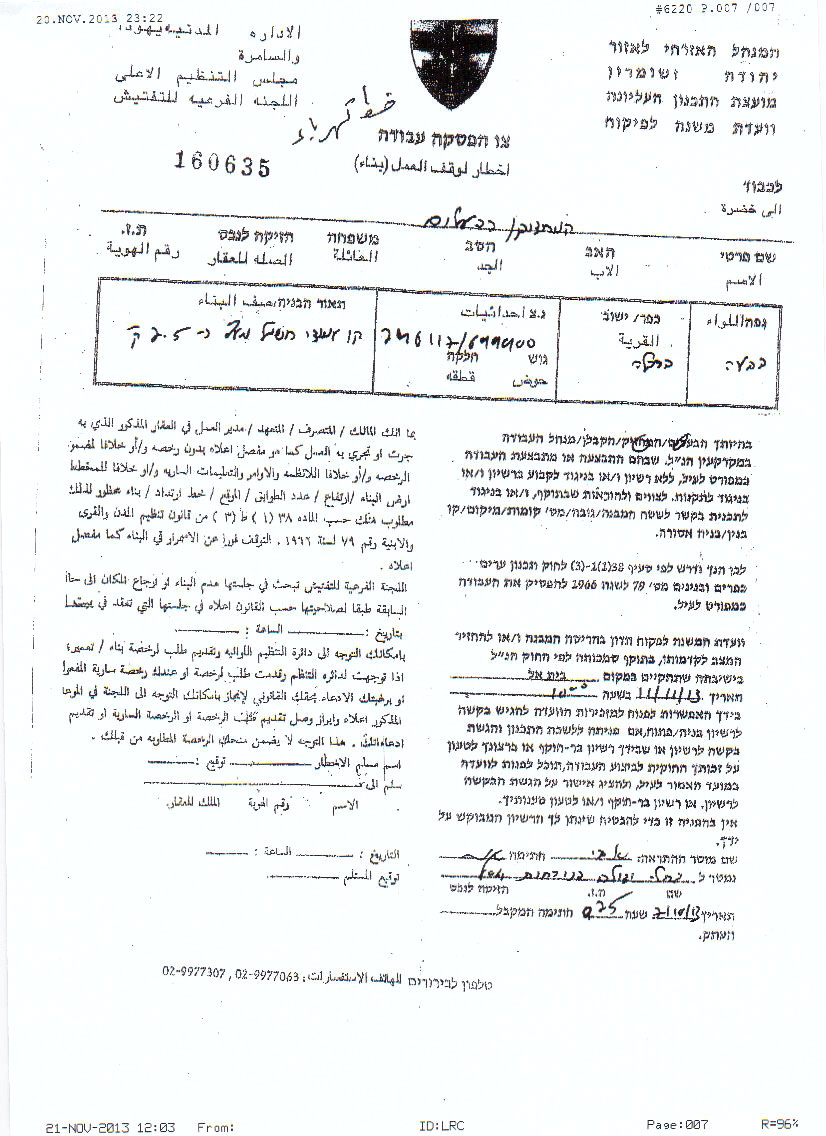 20.NOV.2013 23:22
#6220 P.007 /007
המנהל האזרחי לאזור
יהודה ושומרון
מועצת התכנון העליונה
וועדת משנה לפיקוח
الاداره المدنيه يهودا
والسامرة
مجلس التنظيم الاعلى
اللجنه الفرعيه للتفتيش
خط كهرباء
צו הפסקה עבודה
اخطار لوقف العمل (بناء)
160635
לכבוד
الى حضرة
המחזיק/ בעלים
שם פרטי האב הסב משפחה הזיקה לנכס ת.ז.
الاسم الاب الجد العائلة الصله للعقار رقم الهوية
נפה/اللواء כפר/ישוב נ.צ احداثيات תאור הבניה/صيف البناء
القرية
גוש חלקה
حوض قطعه
קו עמודי חשמל
בהיותך הבעלים/המחזיק/הקבלן/מנהל העבודה
במקרקעין הנ"ל, שבהם התבצעה או מתבצעת העבודה
כמפורט לעיל, ללא רשיון ו/או בניגוד לקבוע ברשיון ו/או
בניגוד לתקנות, לצווים ולהוראות שבתוקף, ו/או בניגוד
לתכנית בקשר לשטח המבנה/גובה/מס' קומות/מיקום/קו
בנין/בניה אסורה.
לכן הנך נדרש לפי סעיף 38(1)-(3) לחוק תכנון ערים
כפרים ובנינים מס' 79 לשנת 1966 להפסיק את העבודה
כמפורט לעיל.
וועדת המשנה לפקוח תדון בהריסת המבנה ו/או להחזיר
המצב לקדמותו, בתוקף סמכותה לפי החוק הנ"ל
בישיבתה שתתקיים במקום בית אל
תאריך 11/11/13 בשעה 10:00
בידך האפשרות לפנות למזכירות הוועדה להגיש בקשה
לרשיון בניה/פתוח, אם פנית ללשכת התכנון והגשת
בקשה לרשיון או שבידך רשיון בר-תוקף או ברצונך לטעון
על זכותך החוקית לביצוע העבודה, תוכל לפנות לוועדה
במועד האמור לעיל, ולהציג אישור על הגשת הבקשה
לרשיון, או רשיון בר-תוקף ו/או לטעון טענותיך.
אין בהפניה זו כדי להבטיח שינתן לך הרשיון המבוקש על
ידך.
שם מוסר ההתראה: אבי חתימה
נמסר ל
שם ת.ז. הזיקה לנכס
תאריך שעה 9:25 חתימה המקבל
העתק.
بما انك المالك / المتصرف / المتعهد / مدير العمل في العقار المذكور الذي به
جرت او تجري به العمل كما هو مفصل اعلاه بدون رخصه و/أو خلافا لمضمون
الرخصه و/أو خلافا للانظمه والاوامر والتعليمات الساريه و/او خلافا للمخطط
ارض البناء /ارتفاع / عدد الطوابق / الموقع / خط ارتداد / بناء محظور لذلك
مطلوب منك حسب الماده ٣٨ (١) ط (٣) من قانون تنظيم المدن والقرى
والابنية رقم ٧٩ لسنة ١٩٦٦ . التوقف فورا عن الاستمرار في البناء كما مفصل
اعلاه .
اللجنه الفرعية للتفتيش تبحث في جلستها هدم البناء او ارجاع المكان الى حالته
السابقة طبقا لصلاحيتها حسب القانون اعلاه في جلستها التي تعقد في
بتاريخ : الساعة :
بامكانك التوجه الى دائرة التنظيم اللوائيه وتقديم طلب لرخصة بناء / تعمير؛
اذا توجهت لدائره التنظم وقدمت طلب لرخصة او عندك رخصة سارية المفعول
او برغبتك الادعاء بحقك القانوني لانجاز بامكانك التوجه الى اللجنة في الموعد
المذكور اعلاه وابراز وصل تقديم طلب الرخصة او الرخصة السارية او تقديم
ادعاءاتك . هذا التوجه لا يضمن منحك الرخصة المطلوبه من قبلك .
اسم مسلم الاخطار توقيع :
سلم الى
الاسم رقم الهوية الملك للعقار.
التاريخ : الساعة :
توقيع المستلم
טלפון לבירורים للهاتف الاستفسارات : 02-9977063 , 02-9977307
21-NOV-2013 12:03 From: ID:LRC Page:007 R=96%